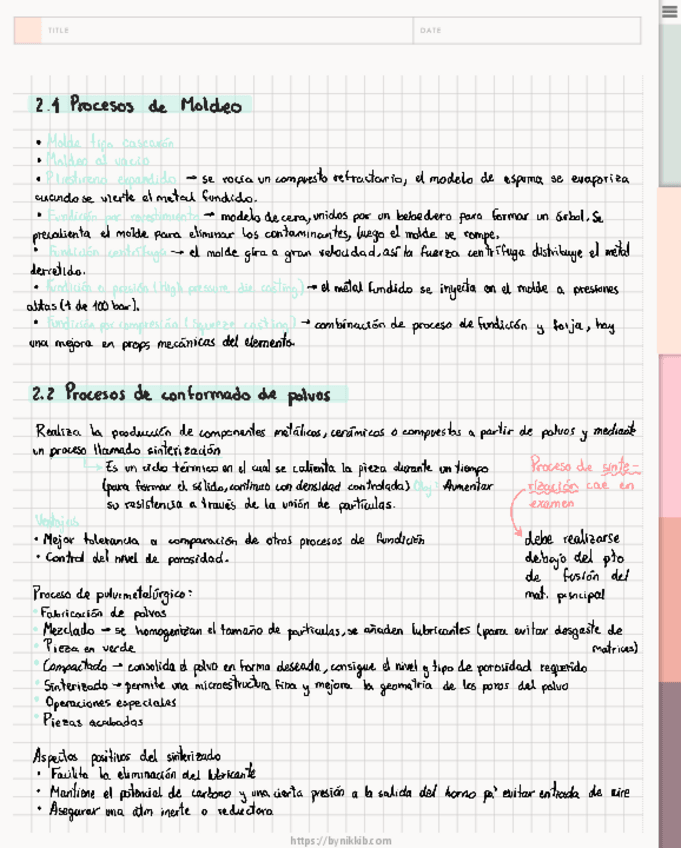 TITLE
DATE
2.1 Procesos de Moldeo
• Molde tipo cascarón
• Moldeo al vacío
• Poliestireno expandido → se rocía un compuesto refractario, el modelo de espuma se evaporiza
cuando se vierte el metal fundido.
• Fundición por revestimiento → modelo de cera, unidos por un bebedero para formar un árbol. Se
precalienta el molde para eliminar los contaminantes, luego el molde se rompe.
• Fundición centrífuga → el molde gira a gran velocidad, así la fuerza centrífuga distribuye el metal
derretido.
• Fundición a presión (High pressure die casting) → el metal fundido se inyecta en el molde a presiones
altas (+ de 100 bar).
• Fundición por compresión (Squeeze casting) → combinación de proceso de fundición y forja, hay
una mejora en props mecánicas del elemento.
2.2 Procesos de conformado de polvos
Realiza la producción de componentes metálicos, cerámicos o compuestos a partir de polvos y mediante
un proceso llamado sinterización
→ Es un ciclo térmico en el cual se calienta la pieza durante un tiempo
(para formar el sólido, continuo con densidad controlada) Obj: Aumentar
su resistencia a través de la unión de partículas.
Proceso de sinte-
rización cae en
examen
debe realizarse
debajo del pto
de fusión del
mat. principal
Ventajas
• Mejor tolerancia a comparación de otros procesos de fundición
• Control del nivel de porosidad.
Proceso de pulvimetalúrgico:
• Fabricación de polvos
• Mezclado → se homogenizan el tamaño de partículas, se añaden lubricantes (para evitar desgaste de
matrices)
• Pieza en verde
• Compactado → consolida el polvo en forma deseada, consigue el nivel y tipo de porosidad requerido
• Sinterizado → permite una microestructura fina y mejora la geometría de los poros del polvo
• Operaciones especiales
• Piezas acabadas
Aspectos positivos del sinterizado
• Facilita la eliminación del lubricante
• Mantiene el potencial de carbono y una cierta presión a la salida del horno pa' evitar entrada de aire
• Asegurar una atm inerte o reductora
https://bynikkib.com